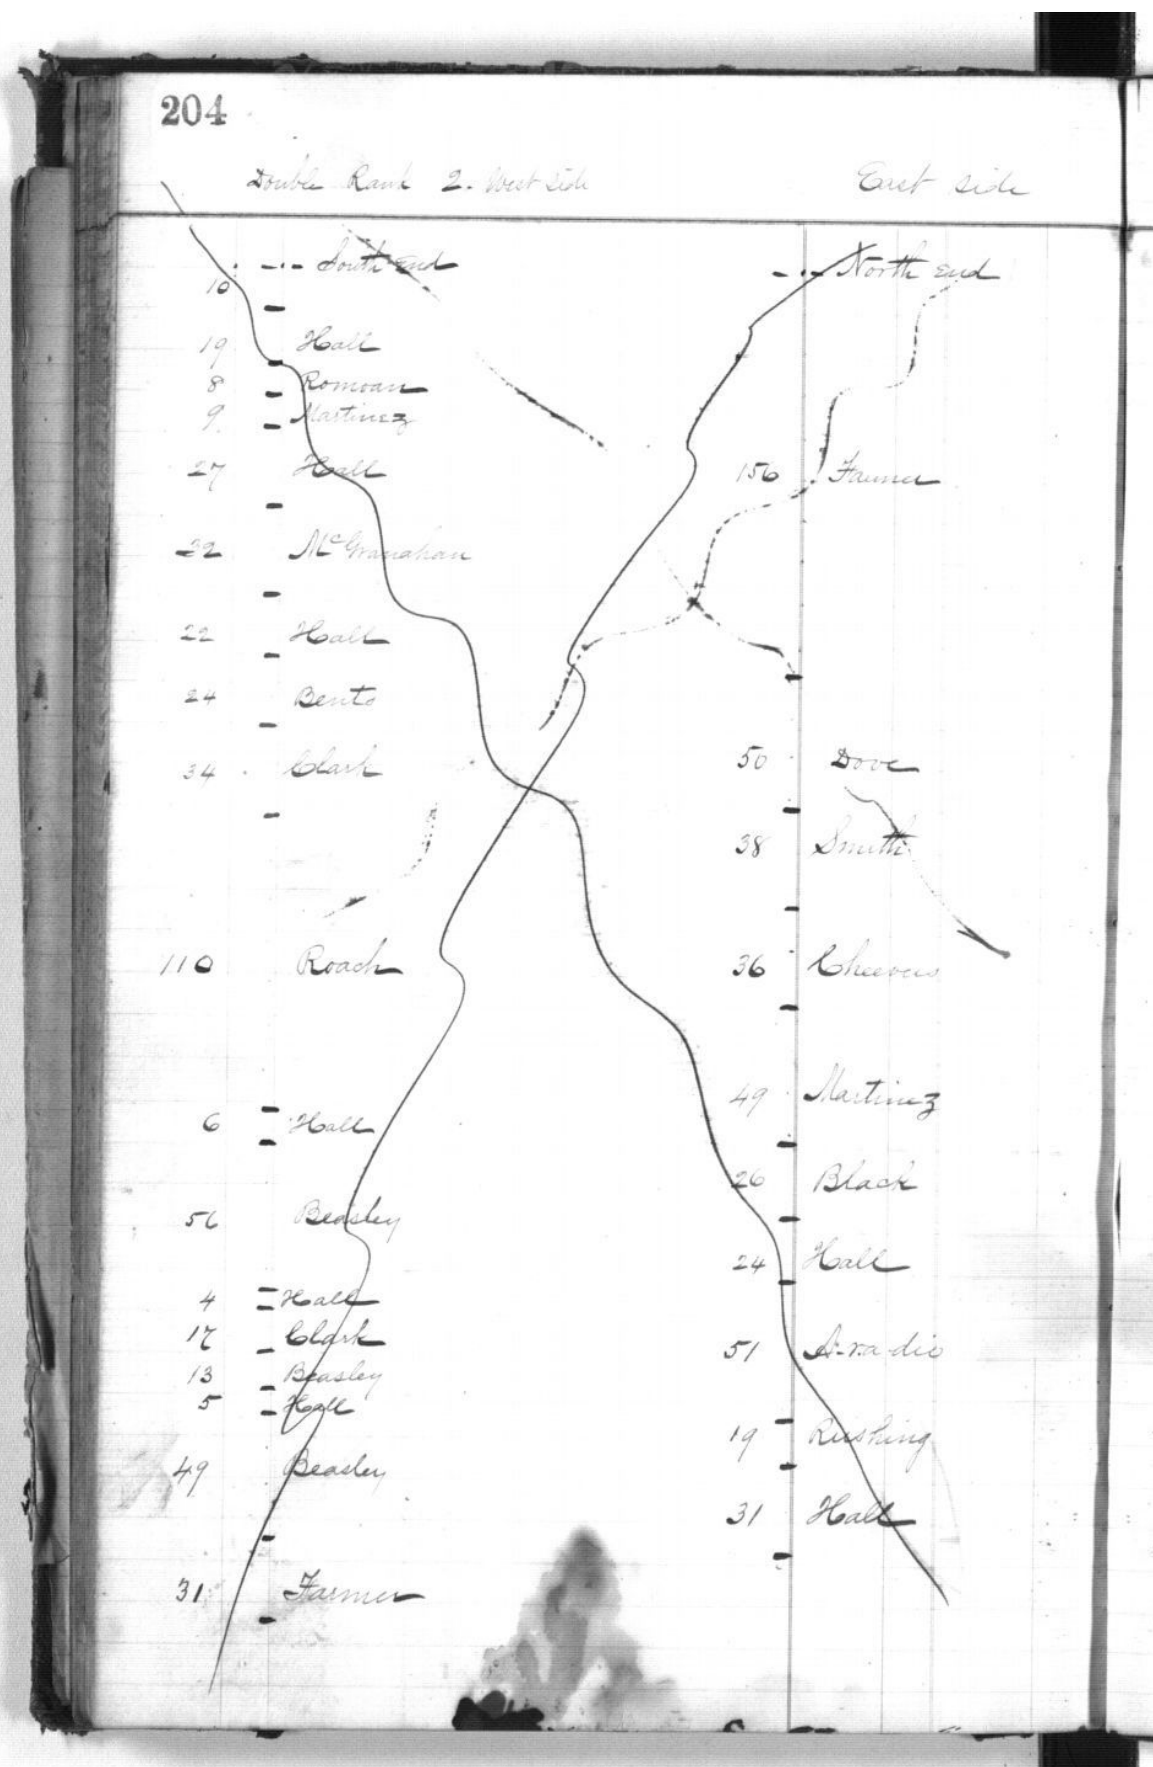 204
Double Rank 2. West side East side
South End
10
19 Hall
8 Romoan
9 Martinez
27 Hall
32 McGranahan
22 Hall
24 Bento
34 Clark
110 Roach
6 Hall
56 Beasley
4 Hall
17 Clark
13 Beasley
5 Hall
49 Beasley
31 Farmer
North End
156 Farmer
50 Dove
38 Smith
36 Cheevers
49 Martinez
26 Black
24 Hall
51
19 Rushing
31 Hall